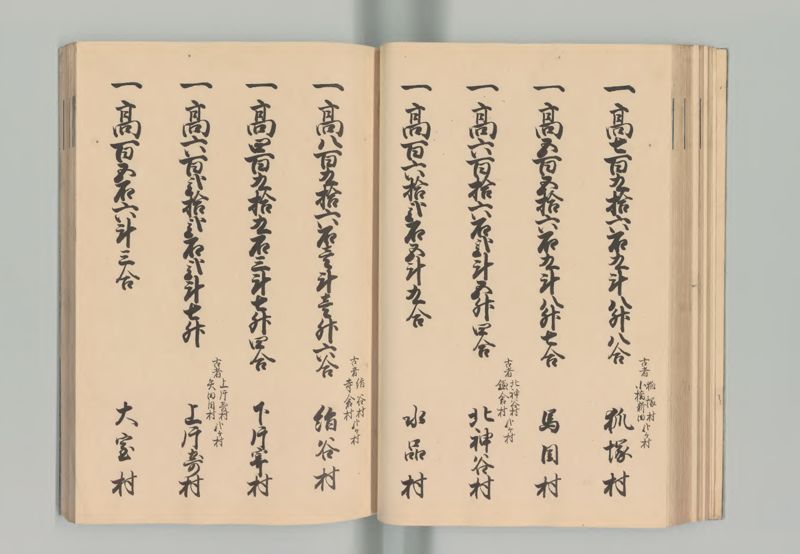 一高七百九拾六石九斗八升八合
古者狐塚村
小橋新田
狐塚村
一高五百五拾六石九斗八升七合
馬目村
一高六百拾六石弐斗五升四合
古者北神谷村
鎌倉村
北神谷村
一高百六拾弐石五斗九合
水品村
一高八百九拾六石壱斗壱升六合
古者絹谷村
寺倉村
絹谷村
一高四百九拾九石三斗七升四合
下片寄村
一高六百弐拾弐石弐斗七升
古者上片寄村
矢田目村
上片寄村
一高百五石六斗三合
大室村